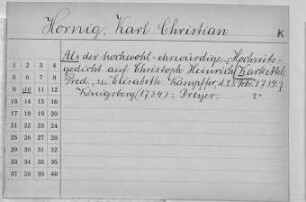 Hornig, Karl Christian
K
Als der hochwohl-ehrwürdige, Hochzeits-
gedicht auf Christoph Heinrich Karkettel
Pred., u. Elisabeth Kämpffer, d. 23. Febr. 1734.
Königsberg (1734): Dreyer. 2°
1 2 3 4
5 6 7 8
9 10 11 12
13 14 15 16
17 18 19 20
21 22 23 24
25 26 27 28
29 30 31 32
33 34 35 36
37 38 39 40